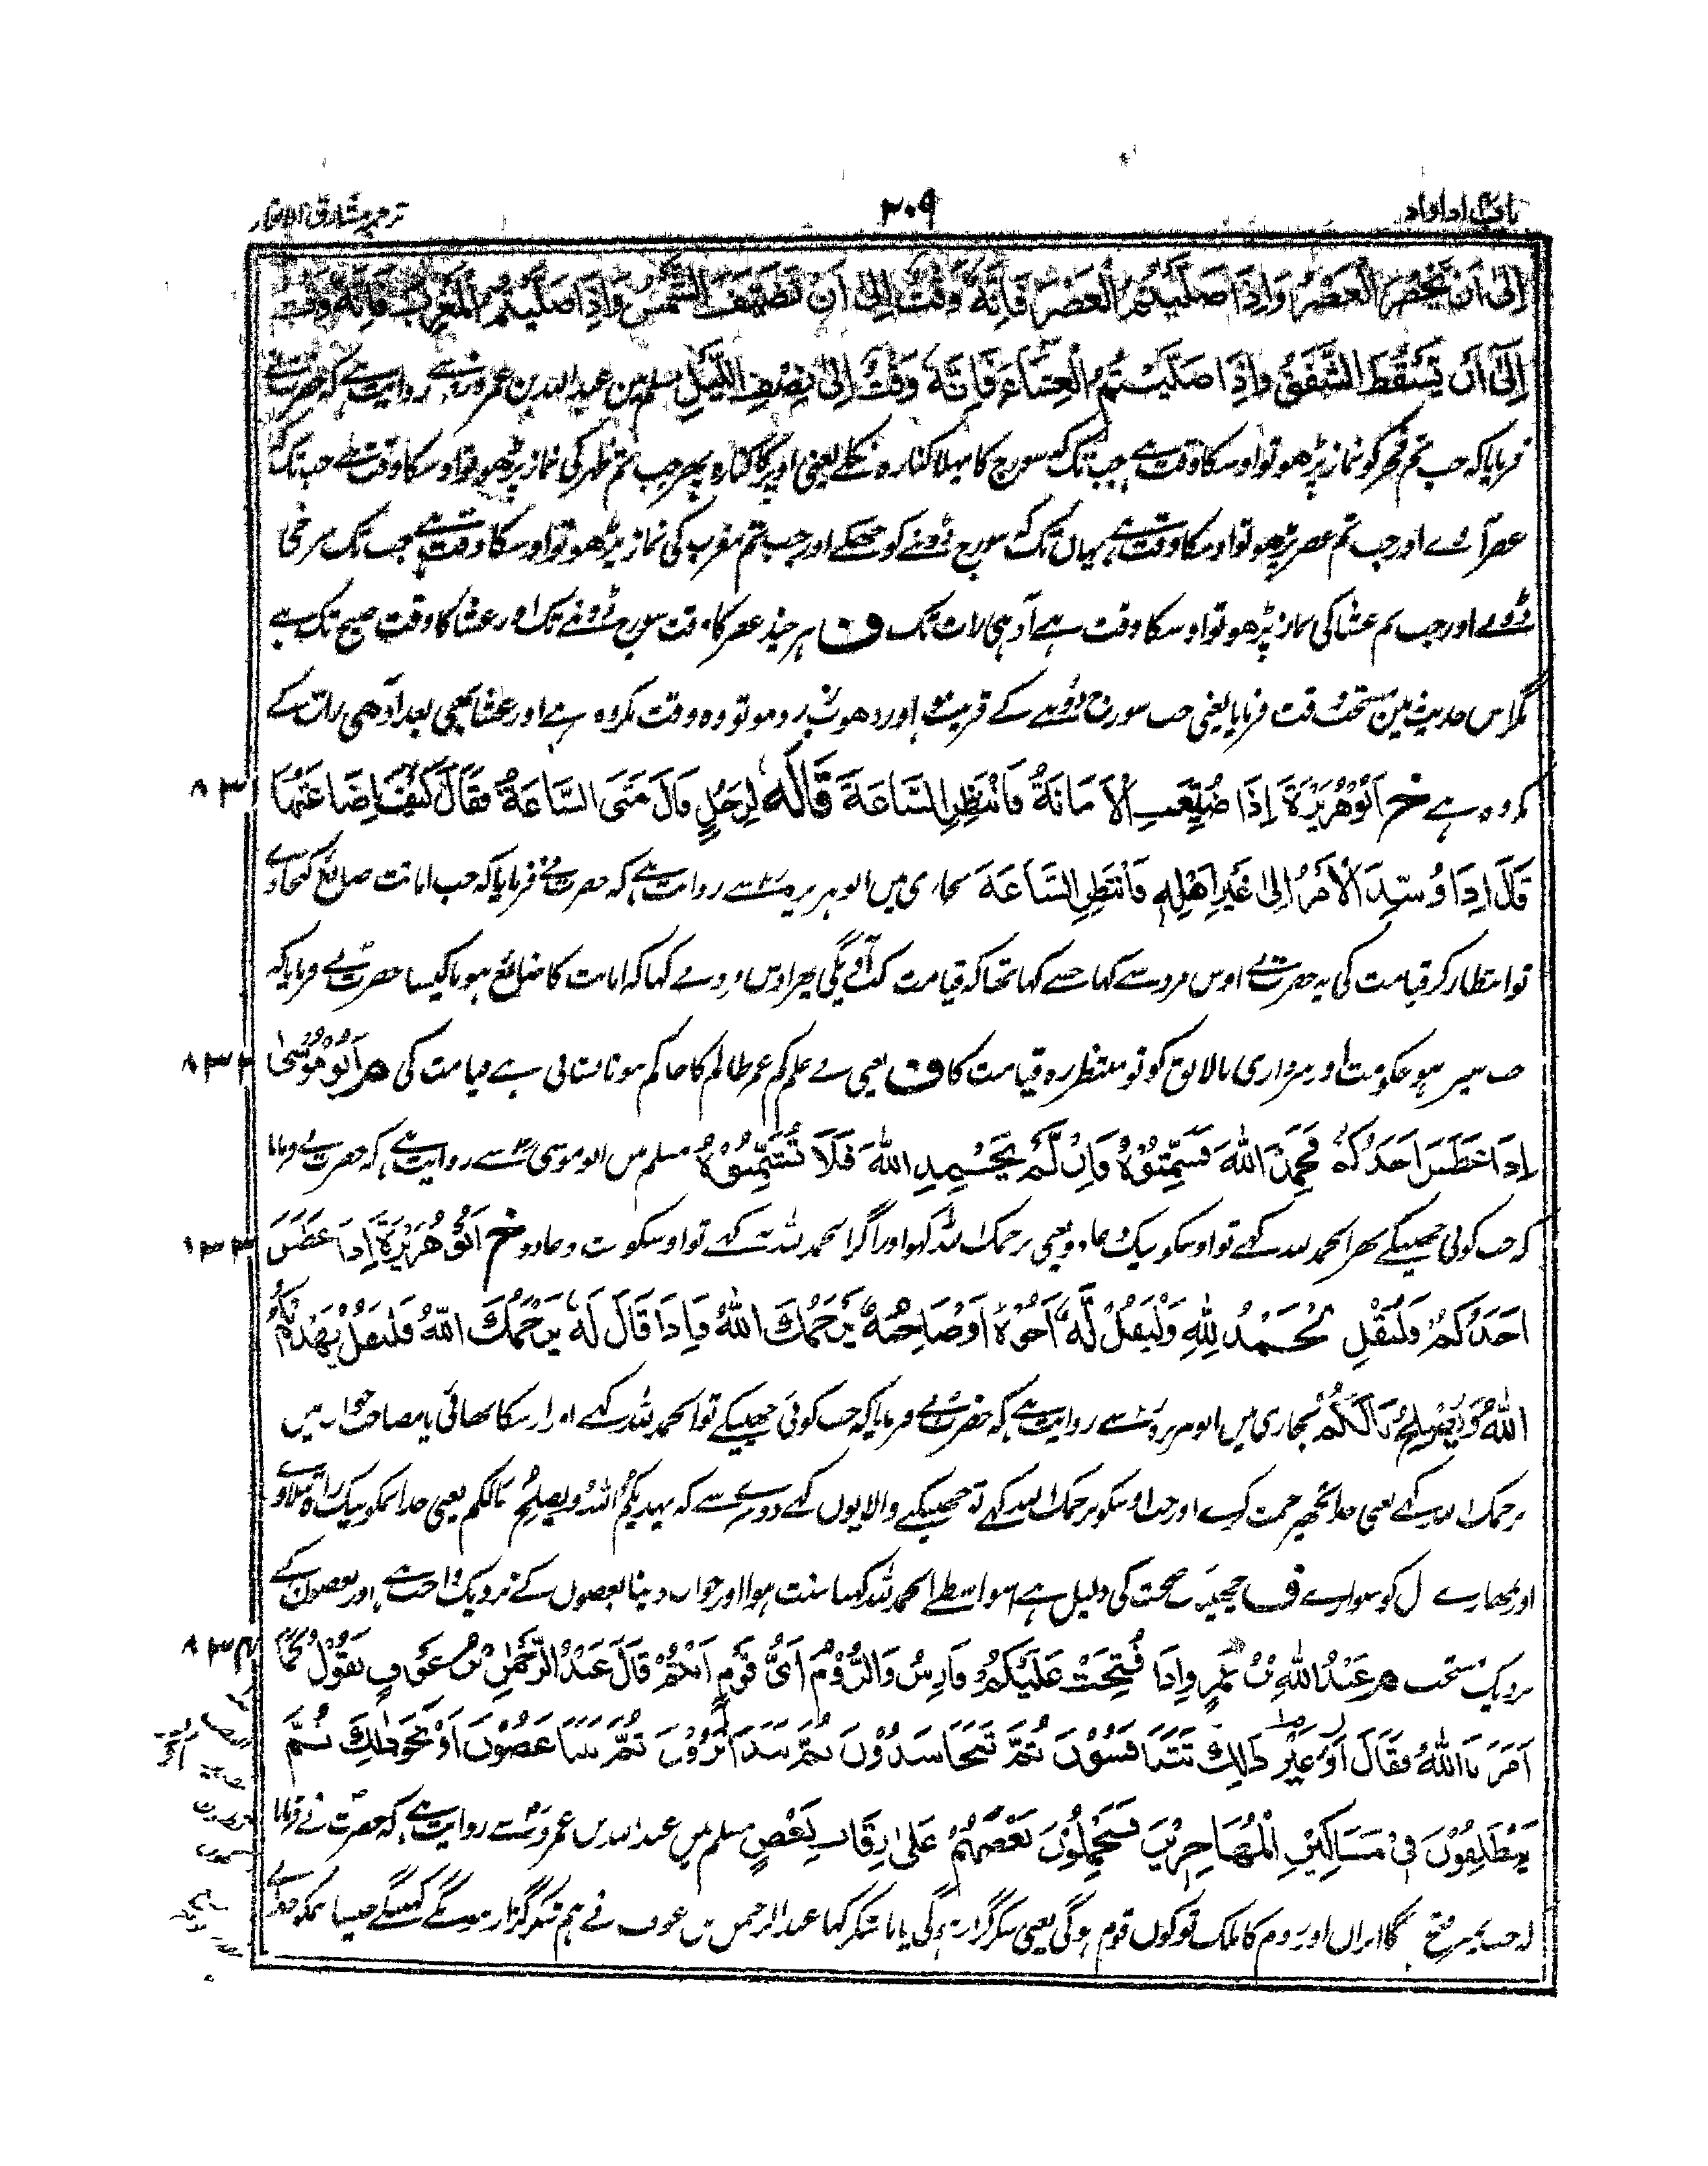 ترجمہ مشارق الانوار
۲۰۹
باب اذا واذ
اِلٰى اَنْ يَّحْضُرَ الْعَصْرُ وَاِذَا صَلَّيْتُمُ الْعَصْرَ فَاِنَّهٗ وَقْتٌ اِلٰى اَنْ تَصْفَرَّ الشَّمْسُ وَاِذَا صَلَّيْتُمُ الْمَغْرِبَ فَاِنَّهٗ وَقْتٌ
اِلٰى اَنْ يَسْقُطَ الشَّفَقُ وَاِذَا صَلَّيْتُمُ الْعِشَاءَ فَاِنَّهٗ وَقْتٌ اِلٰى نِصْفِ اللَّيْلِ مسلم مین عبد اللہ بن عمرو سے روایت ہے کہ حضرت نے
فرمایا کہ جب تم فجر کو نماز پڑھو تو اوسکا وقت ہے جب تک کہ سورج کا پہلا کنارہ نکلے یعنی اوپر کا کنارہ پھر جب تم ظہر کی نماز پڑھو تو اوسکا وقت ہے جب تک کہ
عصر آوے اور جب تم عصر پڑھو تو اوسکا وقت ہے یہاں تک کہ سورج ڈوبنے کو جھکے اور جب تم مغرب کی نماز پڑھو تو اوسکا وقت ہے جب تک سرخی
ڈوبے اور جب تم عشا کی نماز پڑھو تو اوسکا وقت ہے آدہی رات تک ف ہر چند عصر کا وقت سورج ڈوبنے تک اور عشا کا وقت صبح تک ہے
مگر اس حدیث مین مستحب وقت فرمایا یعنی جب سورج ڈوبنے کے قریب ہو اور دھوپ زرد ہو تو وہ وقت مکروہ ہے اور عشا بھی بعد آدھی رات کے
مکروہ ہے خ اَبُوْ هُرَيْرَةَ اِذَا ضُيِّعَتِ الْاَمَانَةُ فَانْتَظِرِ السَّاعَةَ قَالَهٗ لِرَجُلٍ قَالَ مَتَى السَّاعَةُ فَقَالَ كَيْفَ اِضَاعَتُهَا ۸۳۱
قَالَ اِذَا وُسِّدَ الْاَمْرُ اِلٰى غَيْرِ اَهْلِهٖ فَانْتَظِرِ السَّاعَةَ بخاری میں ابو ہریرہ سے روایت ہے کہ حضرت نے فرمایا کہ جب امانت ضائع کیجاوے
تو انتظار کر قیامت کی یہ حضرت نے اوس مرد سے کہا جسے کہا تھا کہ قیامت کب آویگی پھر اوس مرد نے کہا کہ امانت کا ضائع ہونا کیسا حضرت نے فرمایا کہ
جب سپرد ہو حکومت اور سرداری نالائق کو تو منتظر رہ قیامت کا ف یعنی بے علم کم عمر ظالم کا حاکم ہونا نشانی ہے قیامت کی م اَبُوْ مُوْسٰى ۸۳۲
اِذَا عَطَسَ اَحَدُكُمْ فَحَمِدَ اللّٰهَ فَشَمِّتُوْهُ فَاِنْ لَّمْ يَحْمَدِ اللّٰهَ فَلَا تُشَمِّتُوْهُ مسلم میں ابو موسی سے روایت ہے کہ حضرت نے فرمایا
کہ جب کوئی چھینکے پھر الحمد للہ کہے تو اوسکو نیک دعا دو یعنی یرحمک اللہ کہو اور اگر الحمد للہ نہ کہے تو اوسکو مت دعا دو خ اَبُوْ هُرَيْرَةَ اِذَا عَطَسَ ۸۳۳
اَحَدُكُمْ فَلْيَقُلْ اَلْحَمْدُ لِلّٰهِ وَلْيَقُلْ لَّهٗ اَخُوْهُ اَوْ صَاحِبُهٗ يَرْحَمُكَ اللّٰهُ فَاِذَا قَالَ لَهٗ يَرْحَمُكَ اللّٰهُ فَلْيَقُلْ يَهْدِيْكُمُ
اللّٰهُ وَيُصْلِحُ بَالَكُمْ بخاری میں ابو ہریرہ سے روایت ہے کہ حضرت نے فرمایا کہ جب کوئی چھینکے تو الحمد للہ کہے اور اسکا بھائی یا مصاحب جواب میں
یرحمک اللہ کہے یعنی خدا تجھپر رحمت کرے اور جب اوسکو یرحمک اللہ کہے تو چھینکنے والا یوں کہے دوسرے سے کہ یہدیکم اللہ ویصلح بالکم یعنی خدا تمکو نیک راہ بتلاوے
اور تمھارے دل کو سنوارے ف چھینک صحت کی دلیل ہے اسواسطے الحمد للہ کہنا سنت ہوا اور جواب دینا بعضوں کے نزدیک واجب ہے اور بعضوں کے
نزدیک مستحب م عَبْدُ اللّٰهِ بْنُ عَمْرٍو اِذَا فُتِحَتْ عَلَيْكُمْ فَارِسُ وَالرُّوْمُ اَيُّ قَوْمٍ اَنْتُمْ قَالَ عَبْدُ الرَّحْمٰنِ بْنُ عَوْفٍ نَقُوْلُ كَمَا ۸۳۴
اَمَرَنَا اللّٰهُ فَقَالَ اَوْ غَيْرَ ذٰلِكَ تَتَنَافَسُوْنَ ثُمَّ تَتَحَاسَدُوْنَ ثُمَّ تَتَدَابَرُوْنَ ثُمَّ تَتَبَاغَضُوْنَ اَوْ نَحْوَ ذٰلِكَ ثُمَّ
يَنْطَلِقُوْنَ فِيْ مَسَاكِيْنِ الْمُهَاجِرِيْنَ فَيَحْمِلُوْنَ بَعْضَهُمْ عَلٰى رِقَابِ بَعْضٍ مسلم میں عبد اللہ بن عمرو سے روایت ہے کہ حضرت نے فرمایا
کہ جب تمپر فتح ہوگا ایران اور روم کا ملک تو کون قوم ہوگی یعنی شکر گزار ہوگی یا ناشکر کہا عبد الرحمن بن عوف نے ہم شکر گزار ہونگے کہینگے جیسا ہمکو خدا نے